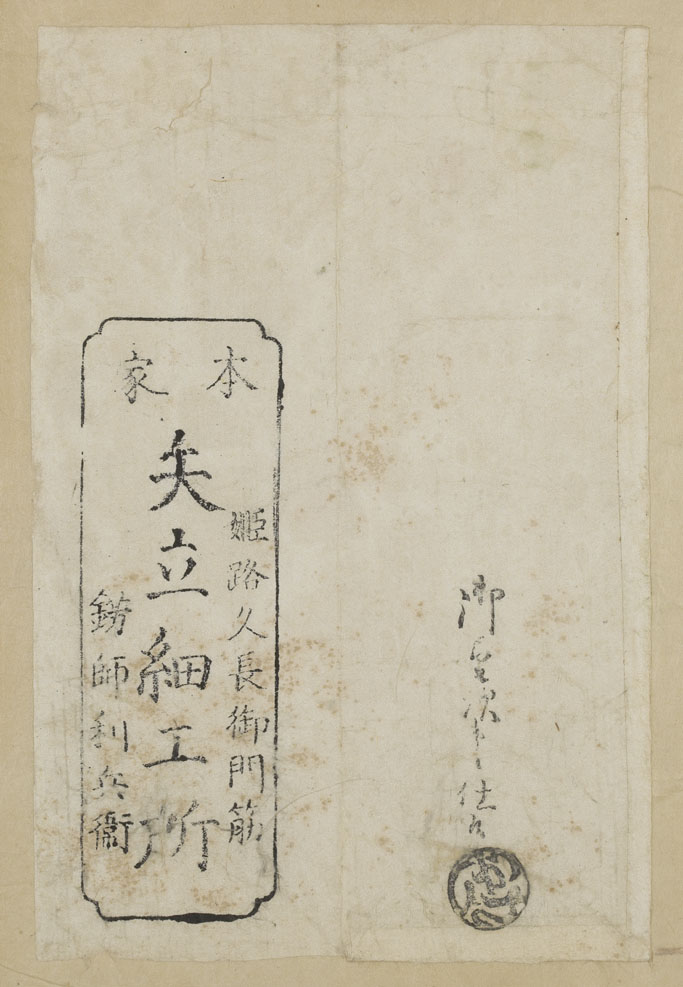 御
本家
姫路久長御門筋
矢立細工所
錺師利兵衛